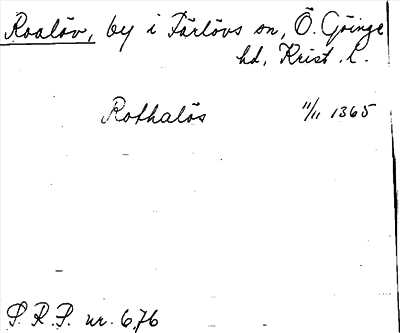 Roalöv, by i Färlövs sn, Ö. Göinge
hd, Krist. l.
Rothalös 11/11 1365
S.R.P. nr. 676